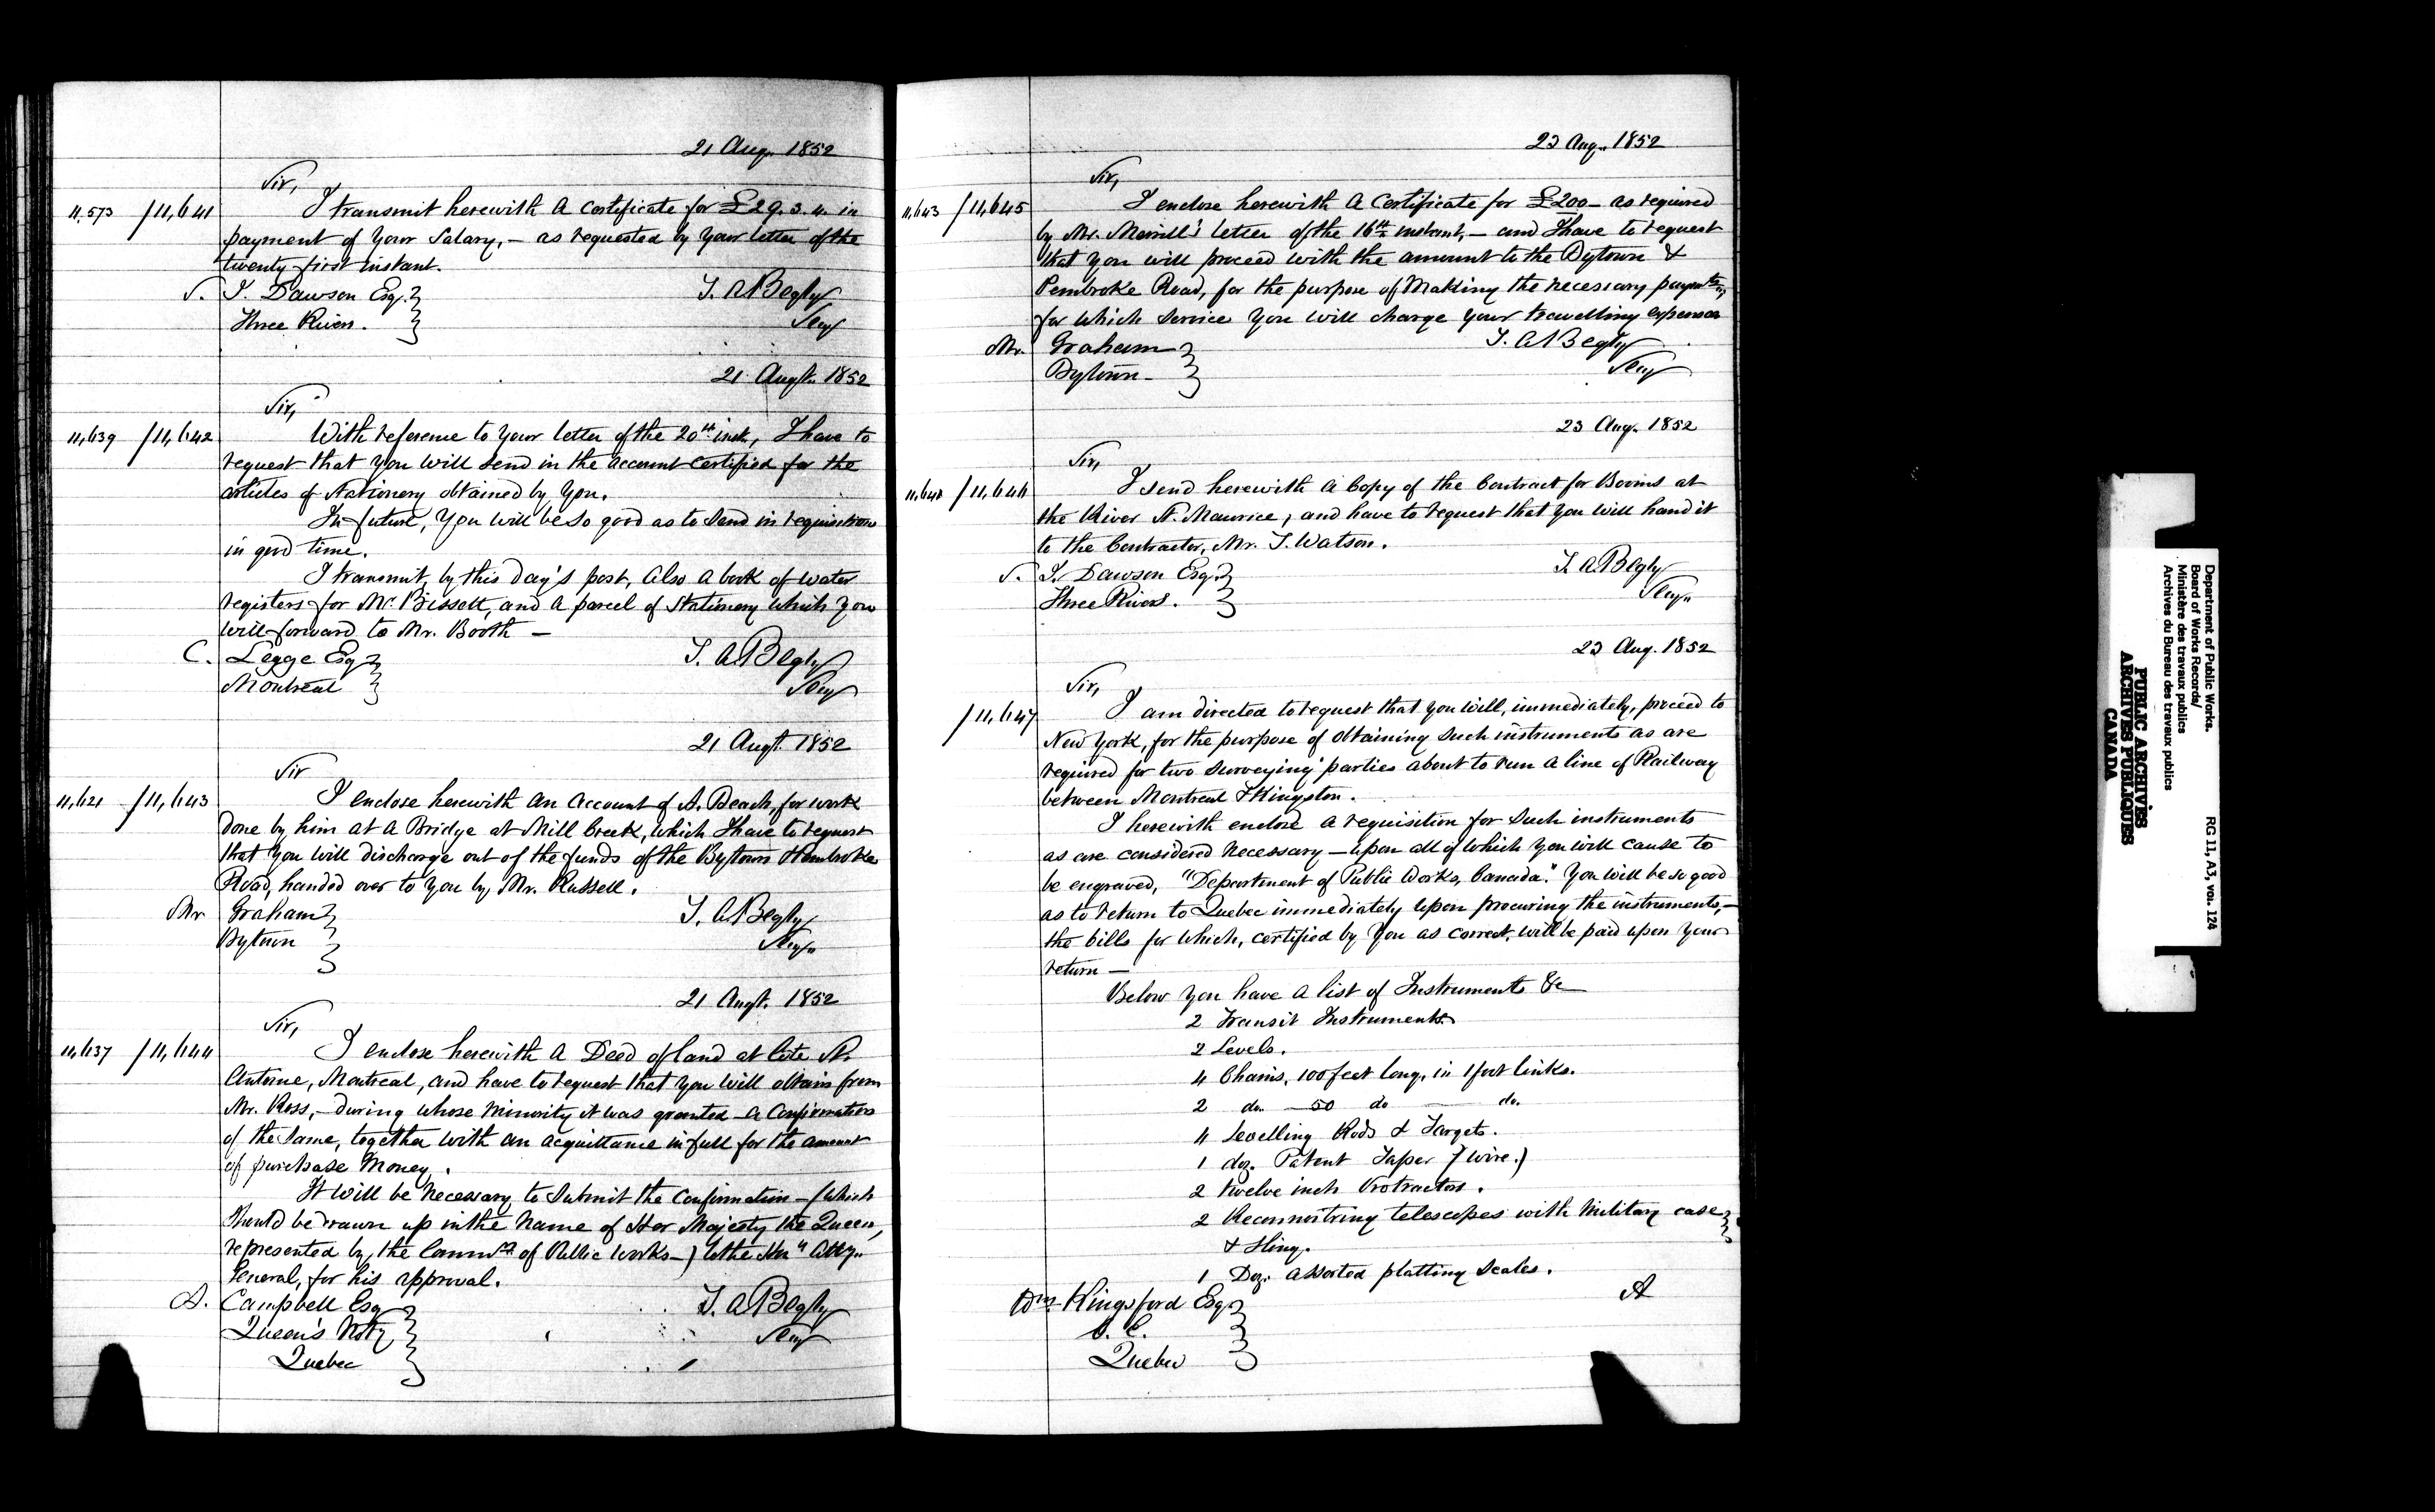 21 Aug. 1852
Sir,
11,573 / 11,641 I transmit herewith a Certificate for £29. 3. 4. in
payment of your Salary, — as requested by your letter of the
twenty first instant.
S. J. Dawson Esq. T. A. Begly
Three Rivers. Secy
21 Augt. 1852
Sir,
11,639 / 11,642 With reference to your letter of the 20th inst., I have to
request that you will send in the account certified for the
articles of Stationery obtained by you.
In future, you will be so good as to send in requisition
in good time.
I transmit, by this day's post, also a book of water
registers for Mr. Bissett, and a parcel of Stationery which you
will forward to Mr. Booth —
C. Legge Esq T. A. Begly
Montreal Secy
21 Augt. 1852
Sir
11,621 / 11,643 I enclose herewith an account of A. Beach, for work
done by him at a Bridge at Mill Creek, which I have to request
that you will discharge out of the funds of the Bytown & Pembroke
Road, handed over to you by Mr. Russell.
Mr Graham T. A. Begly
Bytown Secy.
21 Augt. 1852
Sir,
11,637 / 11,644 I enclose herewith a Deed of land at Cote St.
Antoine, Montreal, and have to request that you will obtain from
Mr. Ross, — during whose minority it was granted — a Confirmation
of the same, together with an acquittance in full for the amount
of purchase money.
It will be necessary to submit the Confirmation — (which
should be drawn up in the name of Her Majesty the Queen,
represented by the Commrs of Public Works —) to the Honl Atty.
General, for his approval.
A. Campbell Esq T. A. Begly
Queen's Noty Secy
Quebec
23 Aug. 1852
Sir,
11,643 / 11,645 I enclose herewith a Certificate for £200 — as required
by Mr. Merrill's letter of the 16th instant, — and I have to request
that you will proceed with the amount to the Bytown &
Pembroke Road, for the purpose of making the necessary paymts,
for which service you will charge your travelling expenses
Mr. Graham T. A. Begly
Bytown — Secy
23 Aug. 1852
Sir,
/ 11,646 I send herewith a Copy of the Contract for Booms at
the River St. Maurice, and have to request that you will hand it
to the Contractor, Mr. J. Watson.
S. J. Dawson Esq. T. A. Begly
Three Rivers. Secy.
23 Aug. 1852
Sir,
/ 11,647 I am directed to request that you will, immediately, proceed to
New York, for the purpose of obtaining such instruments as are
required for two surveying parties about to run a line of Railway
between Montreal & Kingston.
I herewith enclose a requisition for such instruments
as are considered necessary — upon all of which you will cause to
be engraved, "Department of Public Works, Canada." You will be so good
as to return to Quebec immediately upon procuring the instruments, —
the bills for which, certified by you as correct, will be paid upon your
return —
Below you have a list of Instruments &c
2 Transit Instruments
2 Levels.
4 Chains, 100 feet long, in 1 foot links.
2 do. — 50 do — do.
4 Levelling Rods & Targets.
1 doz. Patent Tapes (wire.)
2 twelve inch Protractors.
2 Reconnoitring telescopes with Military case
& Sling.
1 Doz. assorted platting Scales.
Wm Kingsford Esq. A
C. E.
Quebec
Department of Public Works.
Board of Works Records/
Ministère des travaux publics
Archives du Bureau des travaux publics
RG 11, A3, vol. 124
PUBLIC ARCHIVES
ARCHIVES PUBLIQUES
CANADA